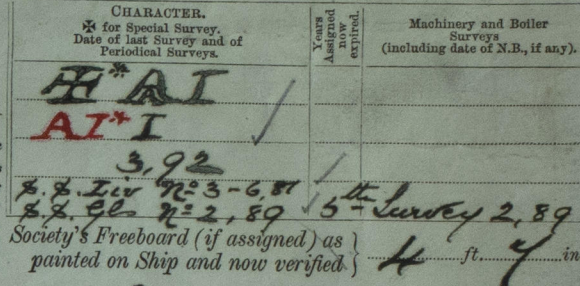 CHARACTER.
✠ for Special Survey.
Date of last Survey and of
Periodical Surveys.
Years
Assigned
now
expired.
Machinery and Boiler
Surveys
(including date of N.B., if any).
✠* A I
AI* I
3,92
S.S. Liv No 3 - 6,81
S.S. Gls No 2,89 5th Survey 2,89
Society's Freeboard (if assigned) as
painted on Ship and now verified } 4 ft. 7 in